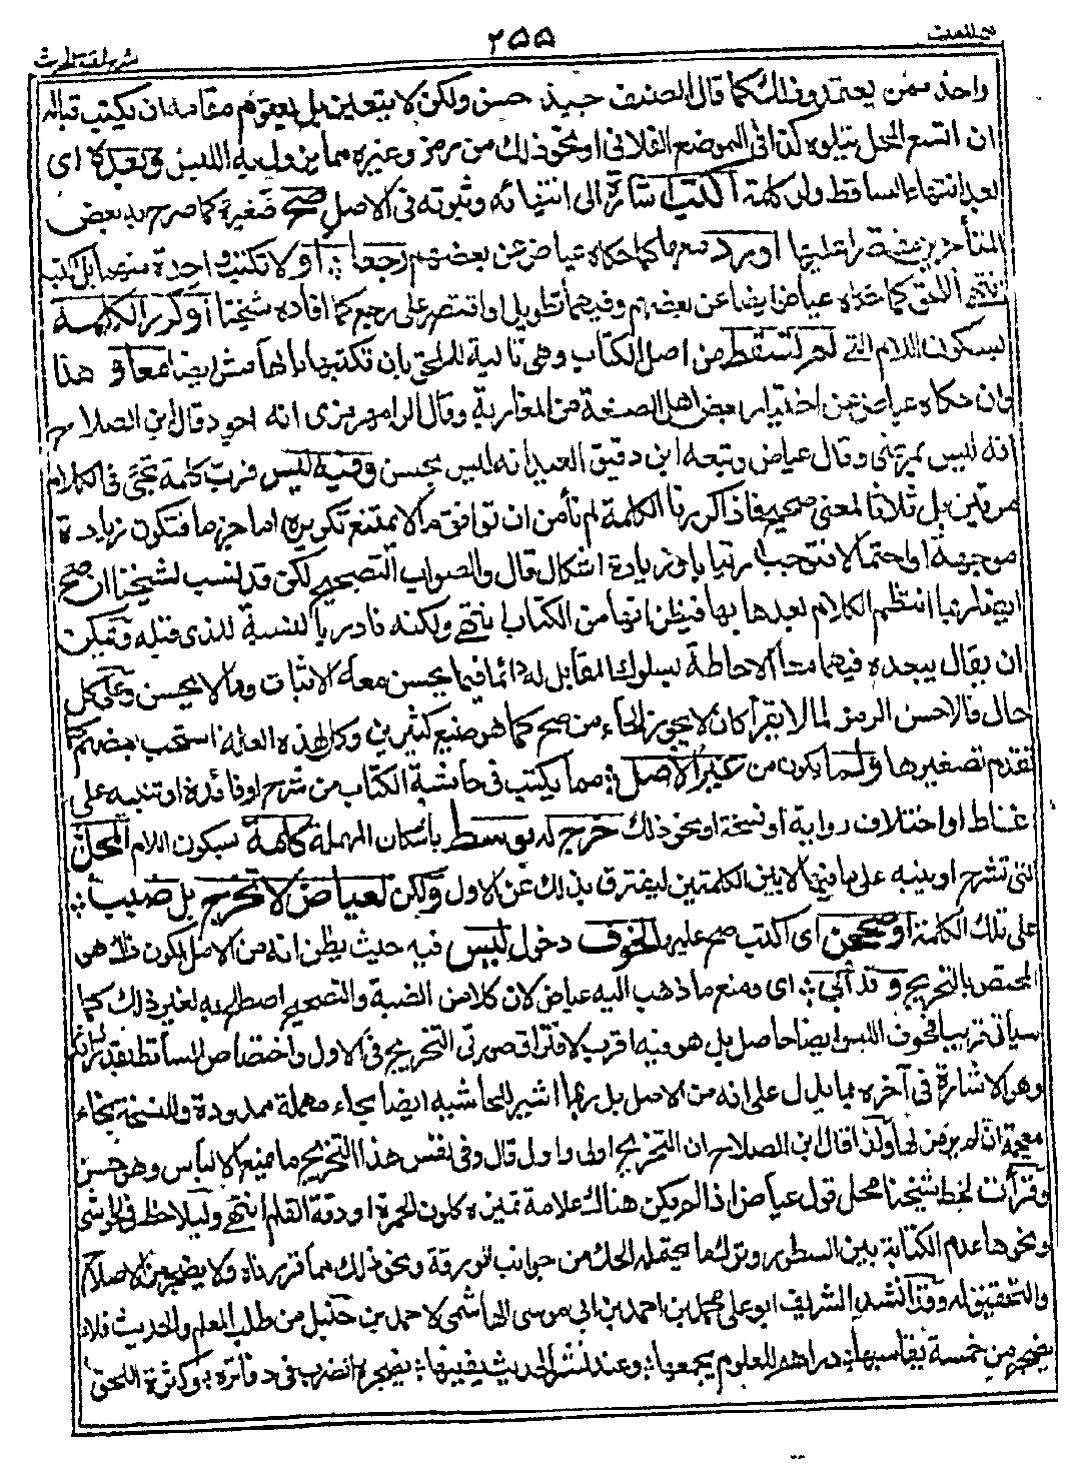 فتح المغيث
٢٥٥
شرح الفية الحديث
واحد ممن يعتمد وذلك كما قال المصنف جيد حسن ولكن لا يتعين بل يقوم مقامه ان يكتب قبالته
ان اتسع المحل يتلوه كذا في الموضع الفلاني او نحو ذلك من رمز وغيره مما يزول به اللبس وبعده اي
بعد انتهاء الساقط ولو كلمة اكتب اشارة الى انتهائه وثبوته في الاصل صح صغيرة كما صرح به بعض
المتأخرين مقتصرا عليها او زد معها كما حكاه عياض عن بعضهم رجعا او لا تكتب واحدة منهما بل اكتب
انتهى اللحق كما حكاه عياض ايضا عن بعضهم وفيهما تطويل او اقتصر على رجع كما افاده شيخنا او كرر الكلمة
بسكون اللام التي لم تسقط من اصل الكتاب وهي تالية للملحق بان تكتبها بالهامش ايضا معا وهذا
وان حكاه عياض عن اختيار بعض اهل الصنعة من المغاربة وقال الرامهرمزي انه اجود قال ابن الصلاح
انه ليس بمرضي وقال عياض وتبعه ابن دقيق العيد انه ليس بحسن وفيه لبس فرب كلمة تجئ في الكلام
مرتين بل ثلاثا لمعنى صحيح فاذا كررنا الكلمة لم نأمن ان توافق ما لا يمتنع تكريره اما جزما فتكون زيادة
موجهة او احتمالا فتوجب ارتيابا وزيادة اشكال قال والصواب التصحيح لكن قد نسب لشيخنا ان صح
ايضا ربما انتظم الكلام بعدها بها فيظن انها من الكتاب انتهى ولكنه نادر بالنسبة للذي قبله ويمكن
ان يقال يبعده فيهما معا الاحاطة بسلوك المقابل له دائما فيما يحسن معه الاثبات وما لا يحسن وعلى كل
حال فالاحسن الرمز لما لا يقرأ كان لا يجوز الحاء من صح كما هو صنيع كثيرين وكان لهذه العلة استحب بعضهم كما
تقدم تصغيرها ولما يكون من غير الاصل مما يكتب في حاشية الكتاب من شرح او فائدة او تنبيه على
غلط او اختلاف رواية أو نسخة او نحو ذلك خرج له بوسط باسكان المهملة كلمة بسكون اللام المحل
التي تشرح او ينبه على ما فيها لا بين الكلمتين ليفترق بذلك عن الاول ولكن لعياض لا تخرج بل ضبب
على تلك الكلمة او صححن اي اكتب صح عليها لخوف دخول لبس فيه حيث يظن انه من الاصل لكون ذلك هو
المختص بالتخريج وقد ابي اي ومنع ما ذهب اليه عياض لان كلا من الضبة والتصحيح اصطلح به لغير ذلك كما
سيأتي قريبا فخوف اللبس ايضا حاصل بل هو فيه اقرب لافتراق صورتي التخريج في الاول واختصاص الساقط بقدر زائد
وهو الاشارة في آخره بما يدل على انه من الاصل بل ربما اشير للحاشية ايضا بحاء مهملة ممدودة وللنسخة بخاء
معجمة ان لم يرمز لها ولذا قال ابن الصلاح ان التخريج اولى واول قال وفي نفس هذا التخريج ما يمنع الالباس وهو حسن
وقرأت بخط شيخنا محل قول عياض اذا لم يكن هناك علامة تميزه كلون الحمرة او دقة القلم انتهى وليلاحظ في الحواشي
ونحوها عدم الكتابة بين السطور وترك ما يحتمله الحك من جوانب الورقة ونحو ذلك مما قررناه ولا يضجر من الاصلاح
والتحقيق له وقد انشد الشريف ابو علي محمد بن احمد بن ابي موسى الهاشمي لاحمد بن حنبل من طلب العلم والحديث فلا
يضجر من خمسة يقاسيها دراهم للعلوم يجمعها وعند نشر الحديث يفنيها يضجره الضرب في دفاتره وكثرة اللحق